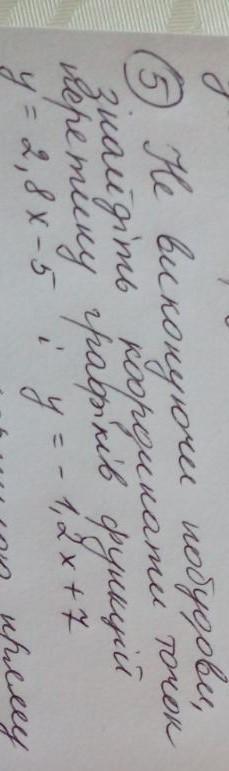 ⑤ Не виконуючи побудови,
знайдіть координати точок
перетину графіків функцій
y = 2,8x - 5 і y = - 1,2x + 7
пряму